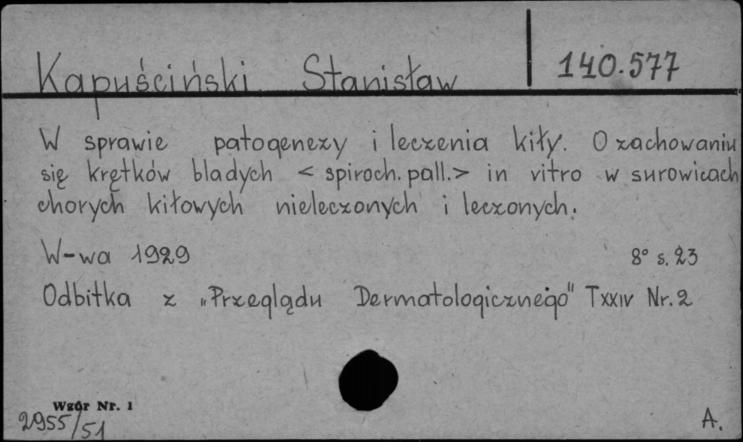 Kapuściński Stanisław 140.577
W sprawie patogenezy i leczenia kiły. O zachowaniu
się krętków bladych < spiroch. pall.> in vitro w surowicach
chorych kiłowych nieleczonych i leczonych.
W-wa 1929 8° s. 23
Odbitka z „Przeglądu Dermatologicznego" T XXIV Nr. 2
Wzór Nr. 1
2955/51 A.